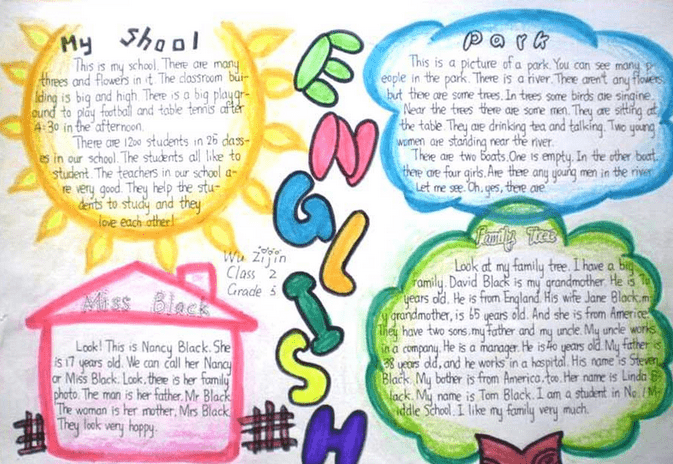 My Shool
This is my school. There are many
threes and flowers in it. The classroom bui-
lding is big and high. There is a big playgr-
ound to play football and table tennis after
4:30 in the afternoon.
There are 1200 students in 25 class-
es in our school. The students all like to
student. The teachers in our school a-
re very good. They help the stu-
dents to study and they
love each other!
ENGLISH
Park
This is a picture of a park. You can see many p-
eople in the park. There is a river. There aren't any flowers,
but there are some trees. In trees some birds are singine.
Near the trees there are some men. They are sitting at
the table. They are drinking tea and talking. Two young
women are standing near the river.
There are two boats. One is empty. In the other boat
there are four girls. Are there any young men in the river
Let me see. Oh, yes, there are
Wu Zijin
Class 2
Grade 3
Miss Black
Look! This is Nancy Black. She
is 17 years old. We can call her Nancy
or Miss Black. Look, there is her family
photo. The man is her father, Mr Black
The woman is her mother, Mrs Black.
They look very happy.
Family Tree
Look at my family tree. I have a big
family. David Black is my grandmother. He is
years old. He is from England. His wife Jane Black, m-
y grandmother, is 65 years old. And she is from Americe.
They have two sons, my father and my uncle. My uncle works
in a company. He is a manager. He is 40 years old. My father is
38 years old, and he works in a hospital. His name is Steven
Black. My bother is from America, too. Her name is Linda B-
lack. My name is Tom Black. I am a student in No. 1 M-
iddle School. I like my family very much.